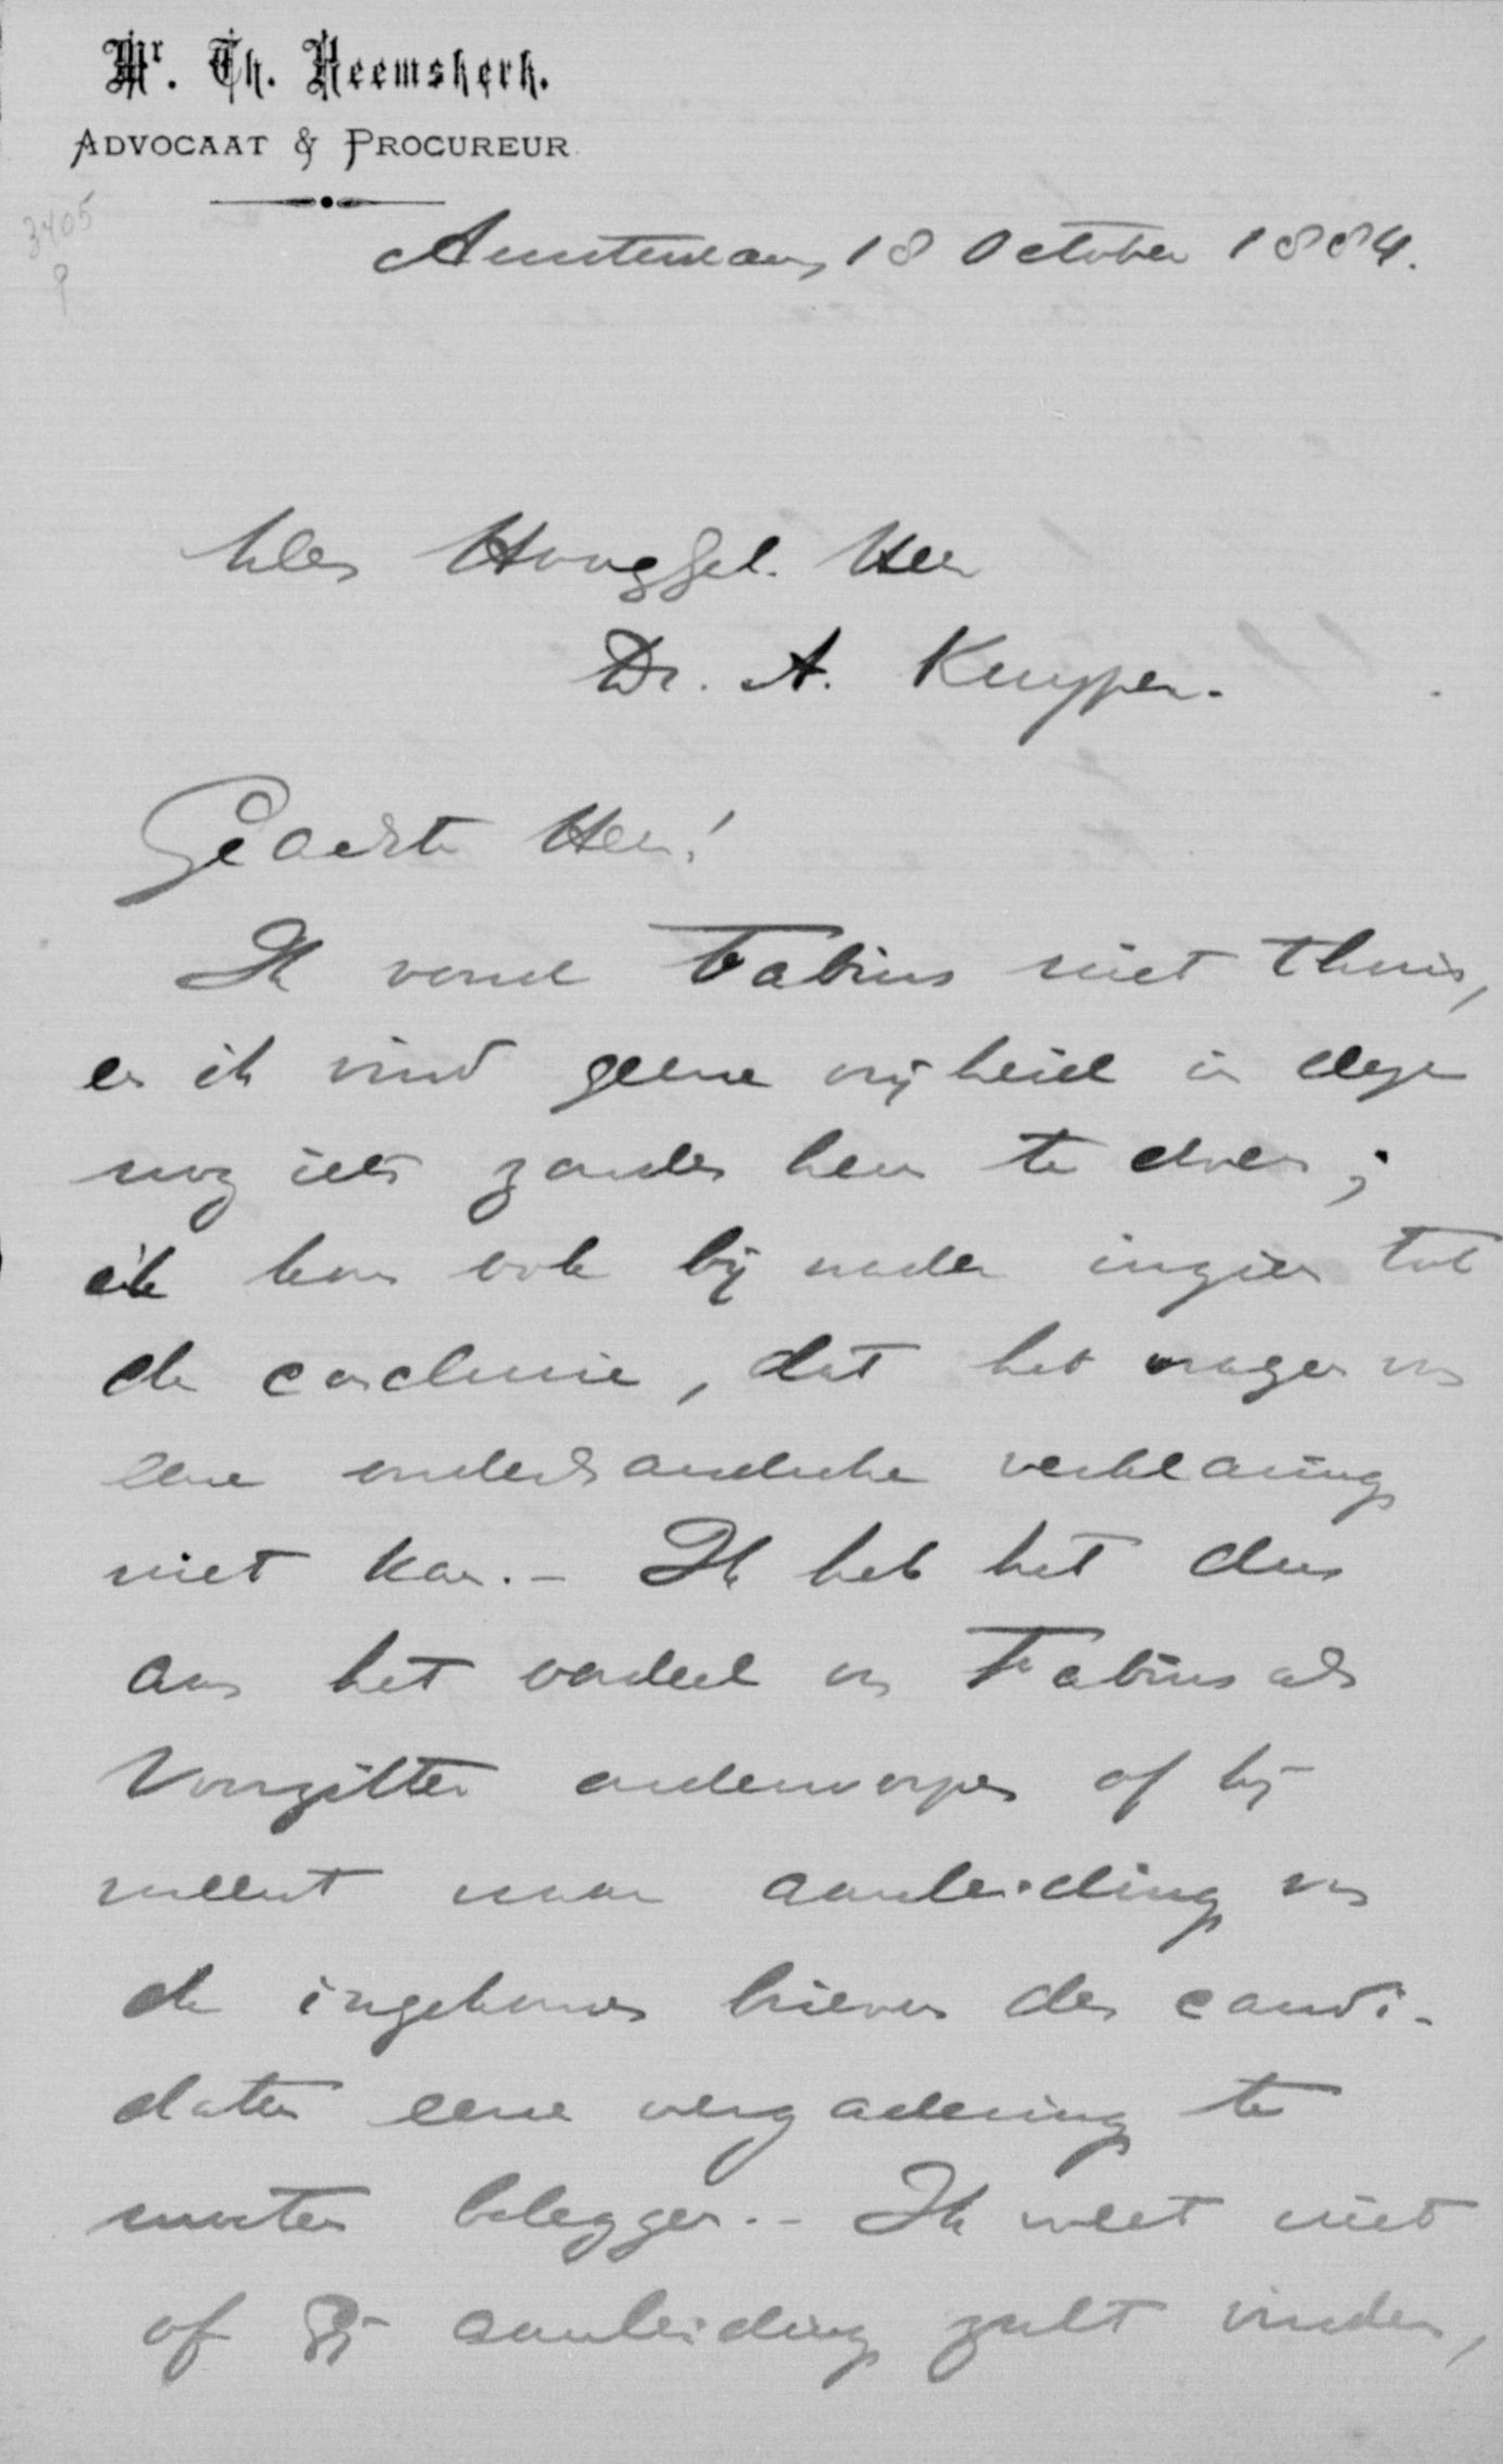 Mr. Th. Heemskerk.
ADVOCAAT & PROCUREUR
3405
Amsterdam, 18 October 1884.
Den Hooggel. Heer
Dr. A. Kuyper.
Geachte Heer!
Ik vond Fabius niet thuis,
en ik vind geene vrijheid in deze
nog iets zonder hem te doen;
ik kom ook bij nader inzien tot
de conclusie, dat het vragen van
eene onderhandsche verklaring
niet kan. - Ik heb het dus
aan het oordeel van Fabius als
Voorzitter onderworpen of hij
meent naar aanleiding van
de ingekomen brieven der candi-
daten eene vergadering te
moeten beleggen. - Ik weet niet
of Gij aanleiding zult vinden,